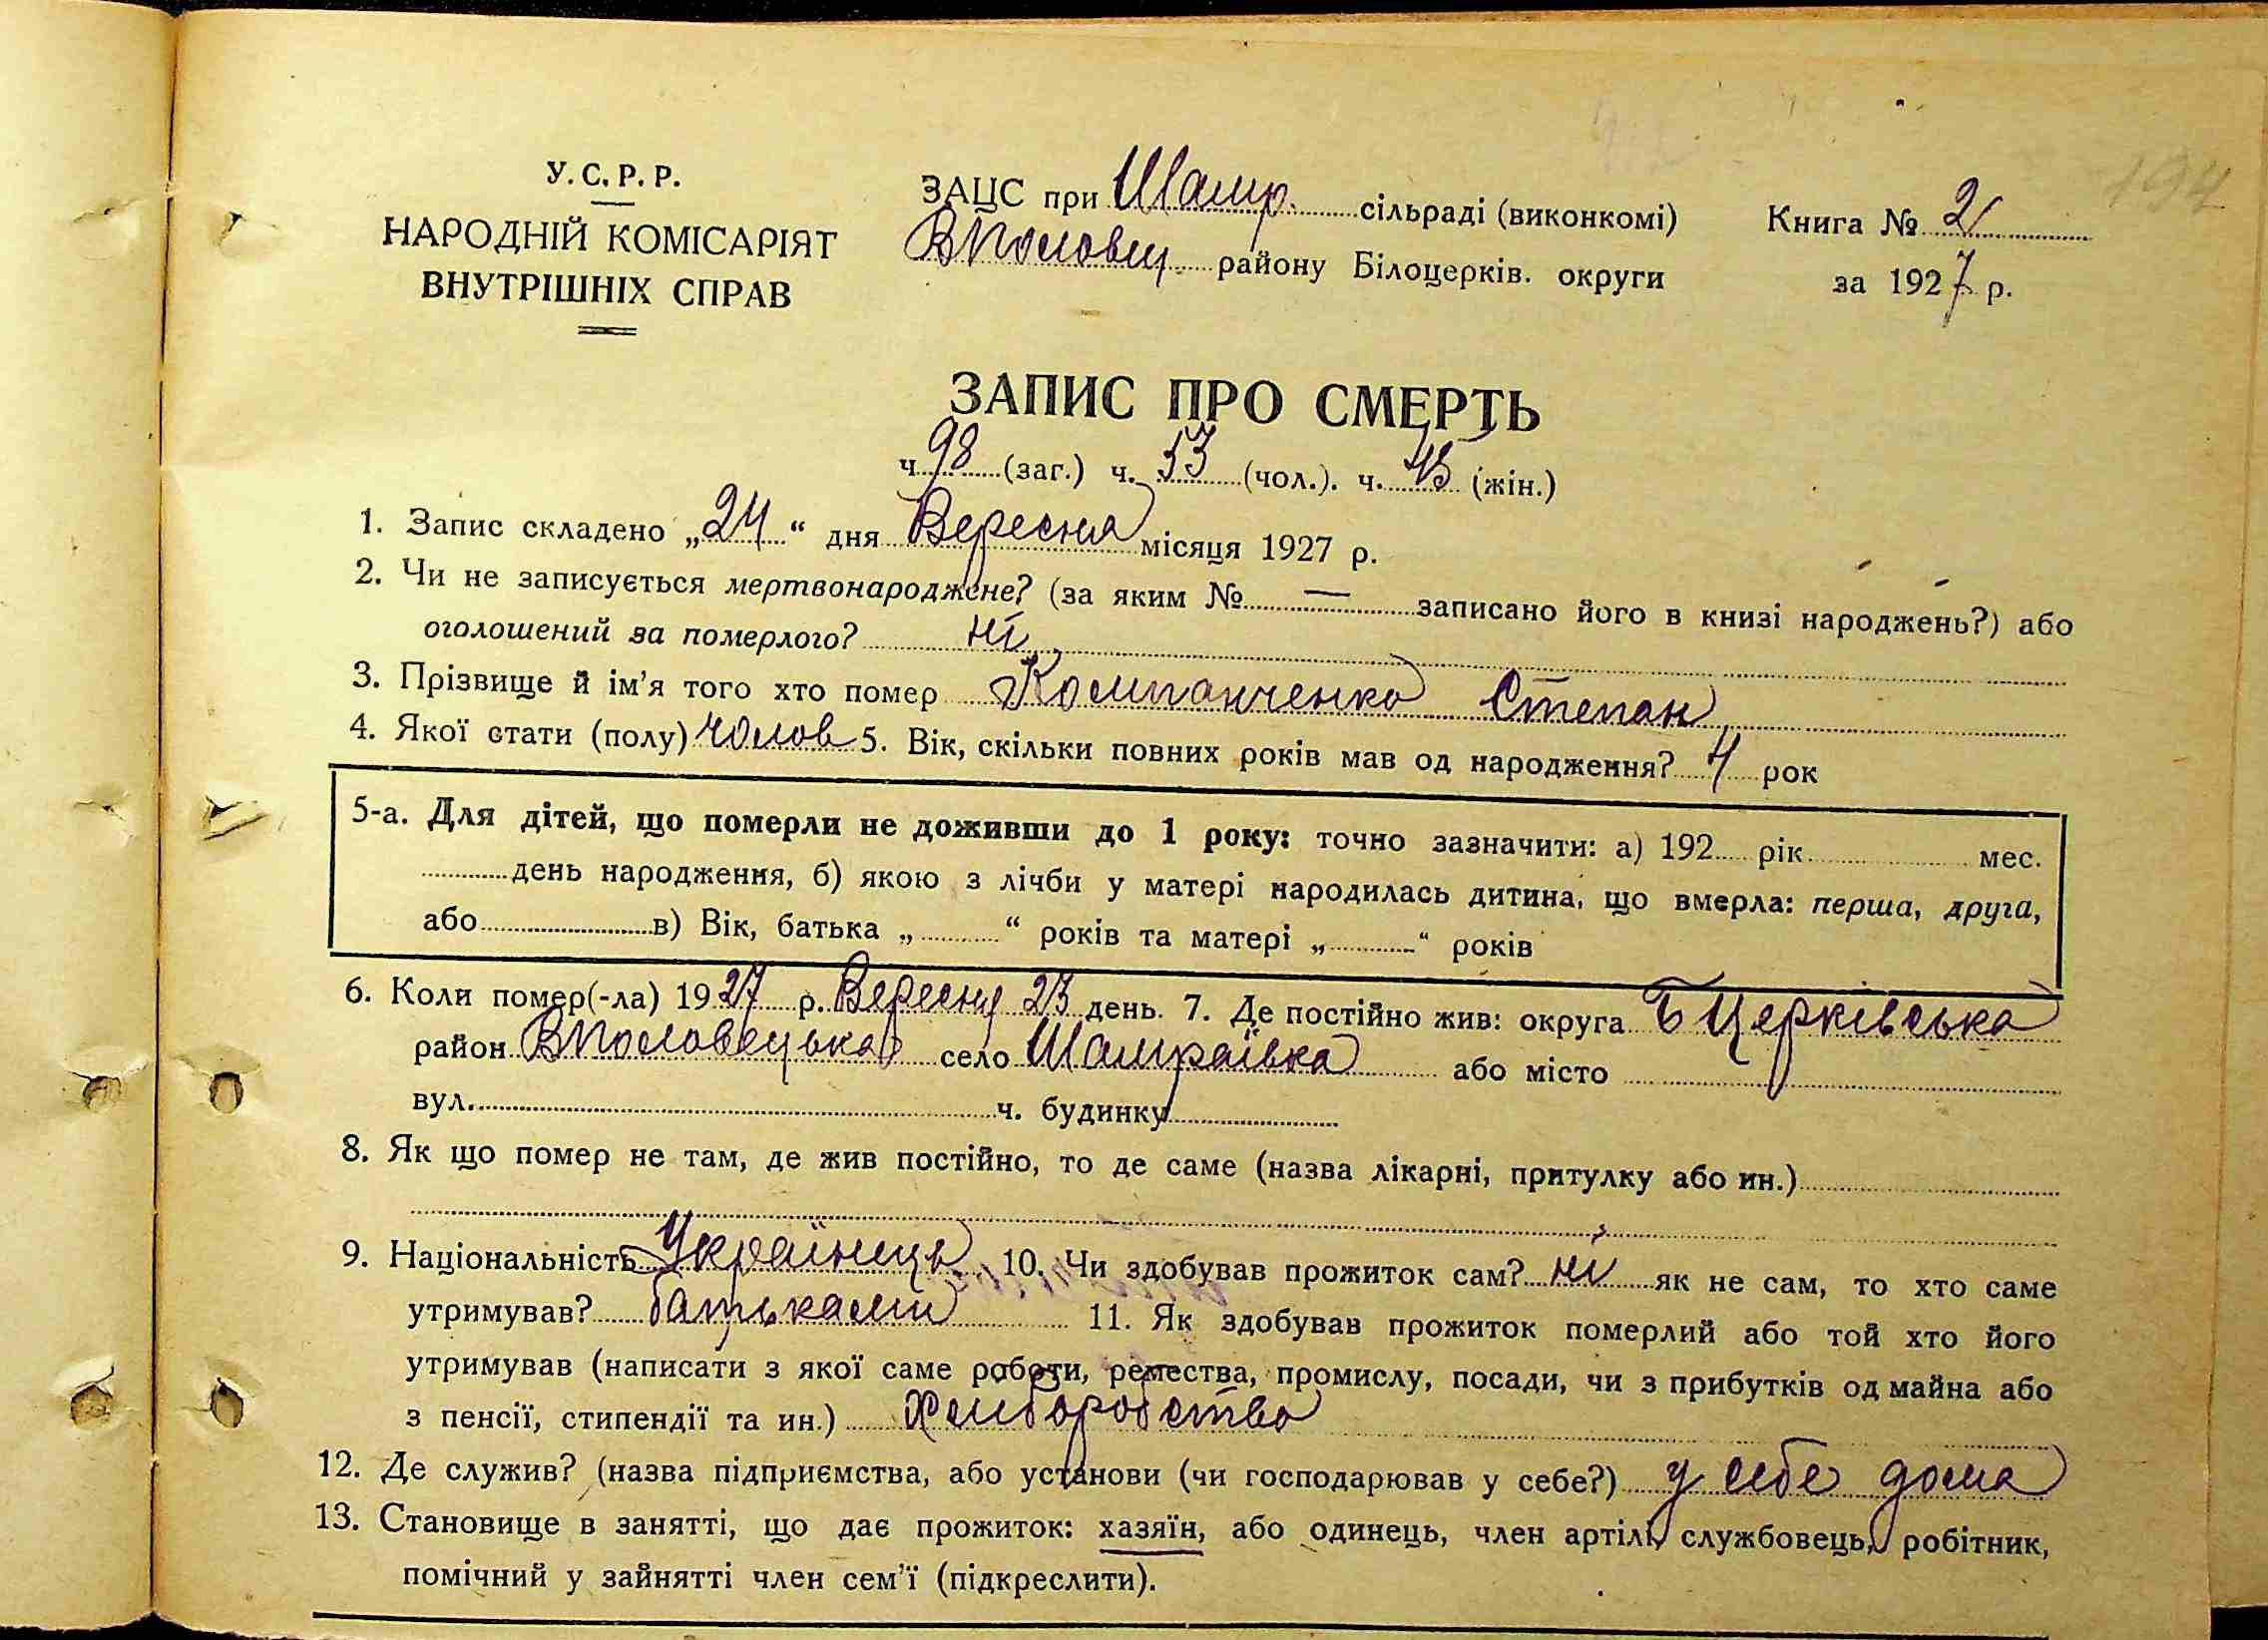 194
У.С.Р.Р.
НАРОДНІЙ КОМІСАРІЯТ
ВНУТРІШНІХ СПРАВ
ЗАЦС при Шамр. сільраді (виконкомі)
ВПоловец. району Білоцерків. округи
Книга № 2
за 1927 р.
ЗАПИС ПРО СМЕРТЬ
ч. 98 (заг.) ч. 53 (чол.). ч. 45 (жін.)
1. Запис складено „24“ дня Вересня місяця 1927 р.
2. Чи не записується мертвонароджене? (за яким № — записано його в книзі народжень?) або
оголошений за померлого? ні
3. Прізвище й ім'я того хто помер Компанченко Степан
4. Якої стати (полу) чолов 5. Вік, скільки повних років мав од народження? 4 рок
5-а. Для дітей, що померли не доживши до 1 року: точно зазначити: а) 192 рік мес.
день народження, б) якою з лічби у матері народилась дитина, що вмерла: перша, друга,
або в) Вік, батька „ “ років та матері „ “ років
6. Коли помер(-ла) 1927 р. Вересня 23 день. 7. Де постійно жив: округа БЦерківська
район ВПоловецька село Шамраївка або місто
вул. ч. будинку
8. Як що помер не там, де жив постійно, то де саме (назва лікарні, притулку або ин.)
9. Національність Українець 10. Чи здобував прожиток сам? ні як не сам, то хто саме
утримував? батьками 11. Як здобував прожиток померлий або той хто його
утримував (написати з якої саме роботи, ремества, промислу, посади, чи з прибутків од майна або
з пенсії, стипендії та ин.) Хліборобство
12. Де служив? (назва підприємства, або установи (чи господарював у себе?) у себе дома
13. Становище в занятті, що дає прожиток: хазяїн, або одинець, член артілі, службовець, робітник,
помічний у зайнятті член сем'ї (підкреслити).